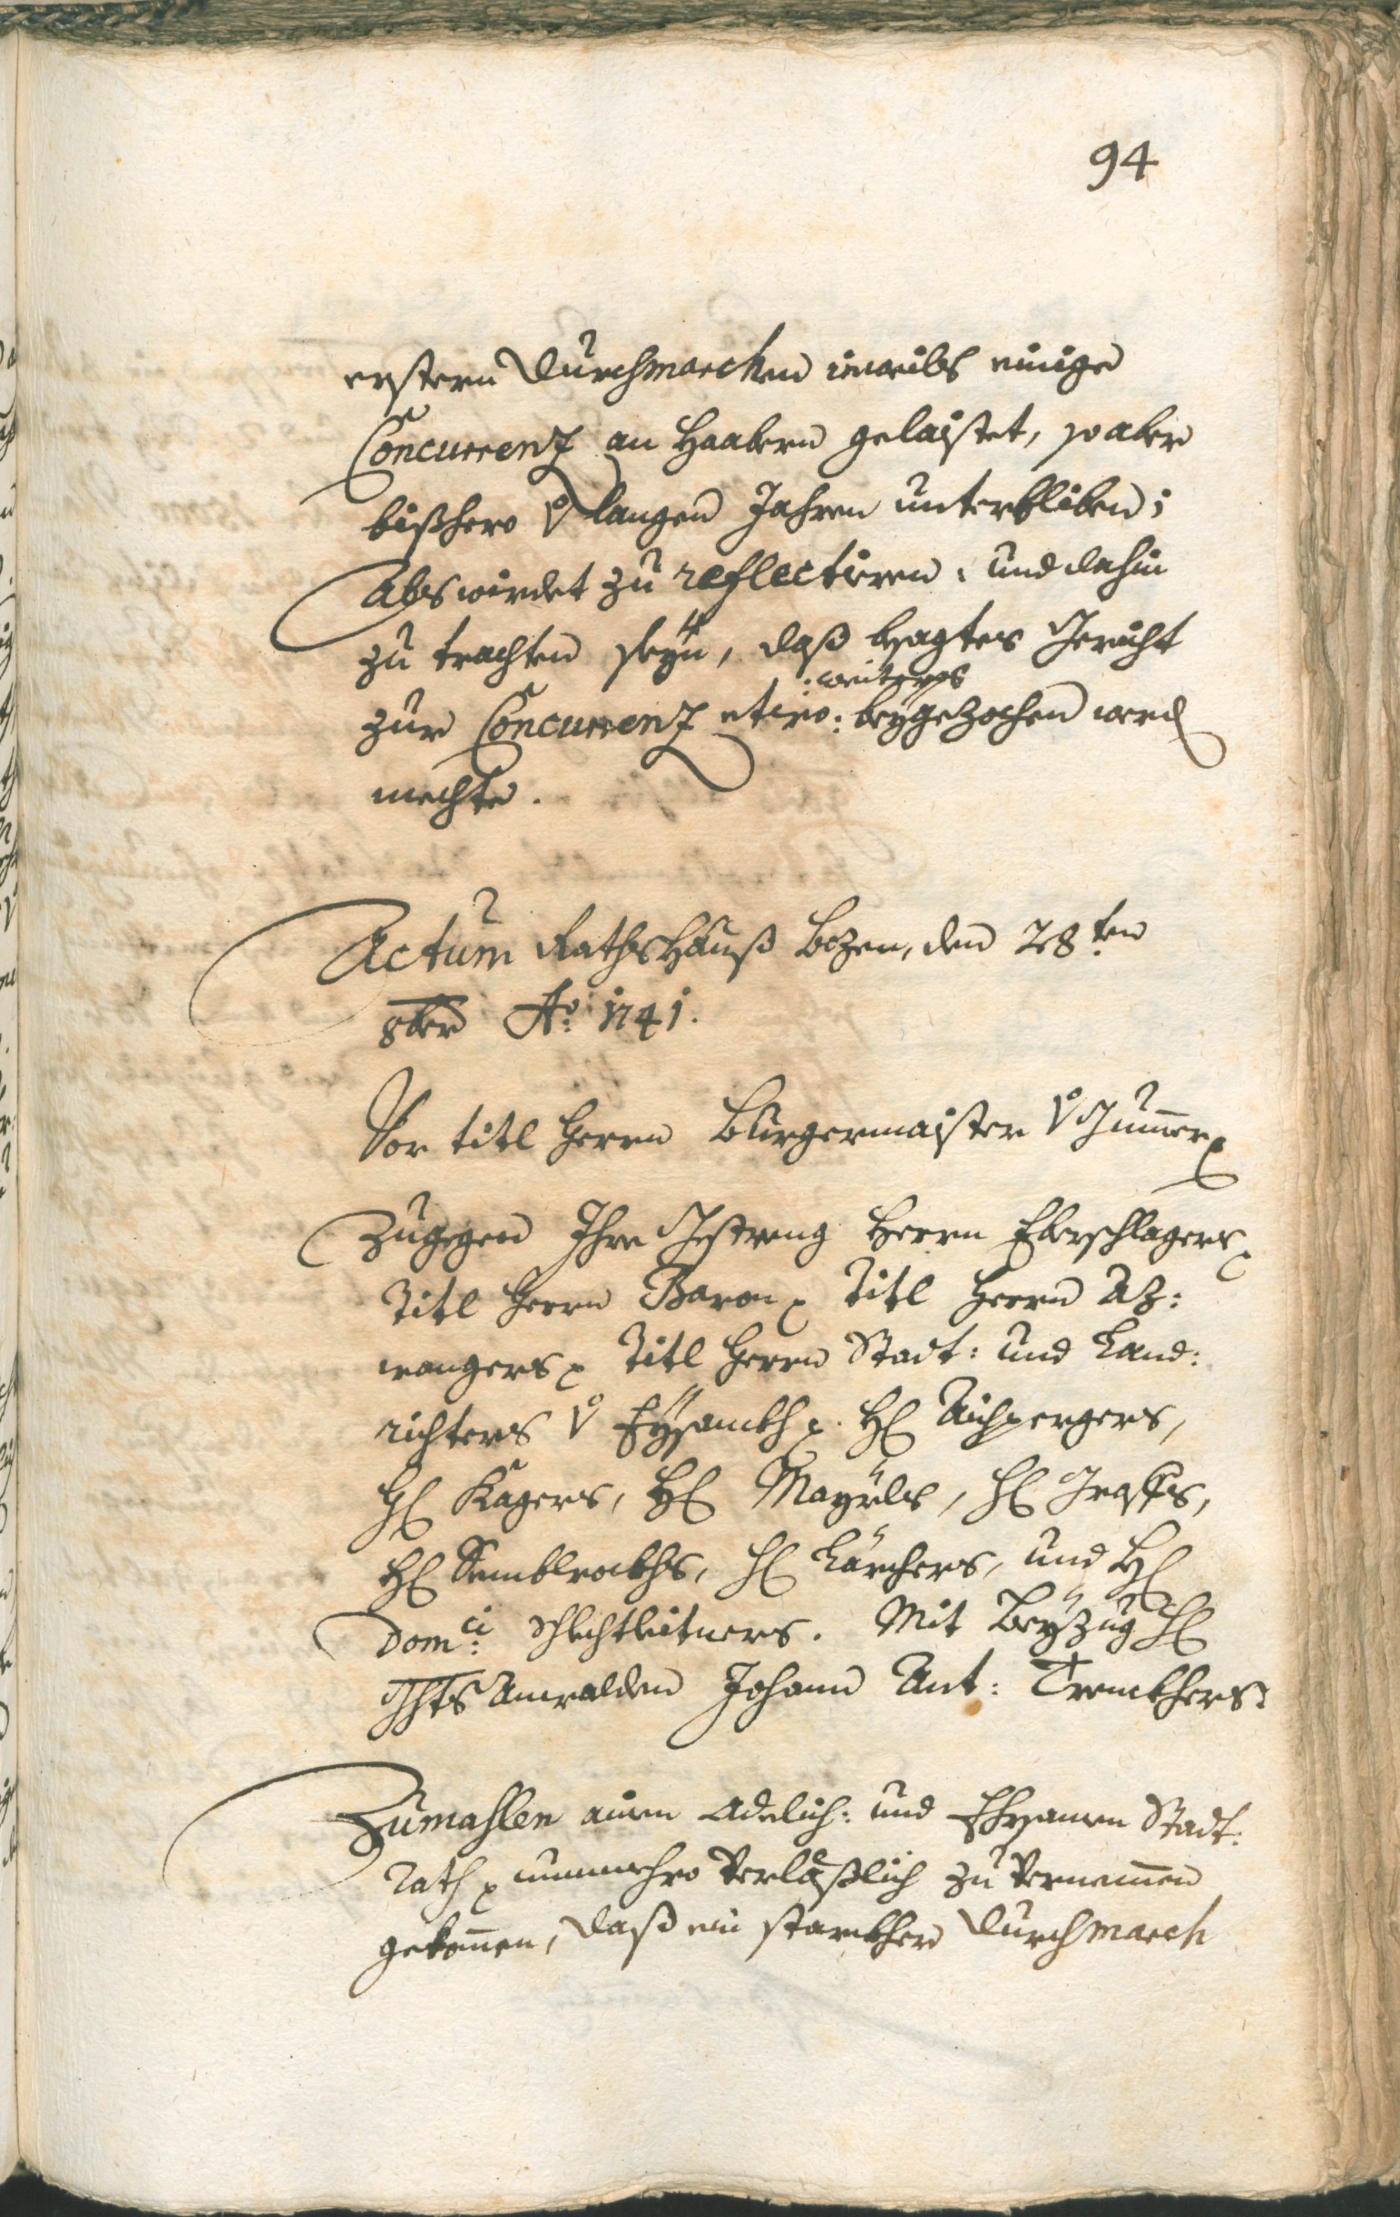 94
erstern Durchmarchen ieweils einige
Concurrenz an Haabern gelaistet, so aber
bißhero v langen Jahren unterbliben;
Als wirdet zu reflectieren: und dahin
zu trachten seyn, daß besagtes Gericht
weiters
zur Concurrenz beygezochen werd
mechte.
Actum RathsHauß Bozen, den 28ten
8ber Ao: 1741.
Vor titl Herrn Burgermaister v Gummer
Zugegen Ihre Gestreng Herrn Eberschlagers
Titl Herrn Baron Titl Herrn Az:
wangers Titl Herrn Stadt: und Land:
richters v Eysankh H Aichpergers,
H Kägers, H Mayrls, H Grasss,
H Semblrockhs, H Lärchers, und H
Domci: Schlechtleitners. Mit Beyzug H
Ghts Anwalden Johann Ant: Trenckhers
Zumahlen ainem Adelich: und Ehrsamen Stadt:
Rath nunmehro verläßlich zu vernemmen
gekommen, daß ein starckher Durchmarch